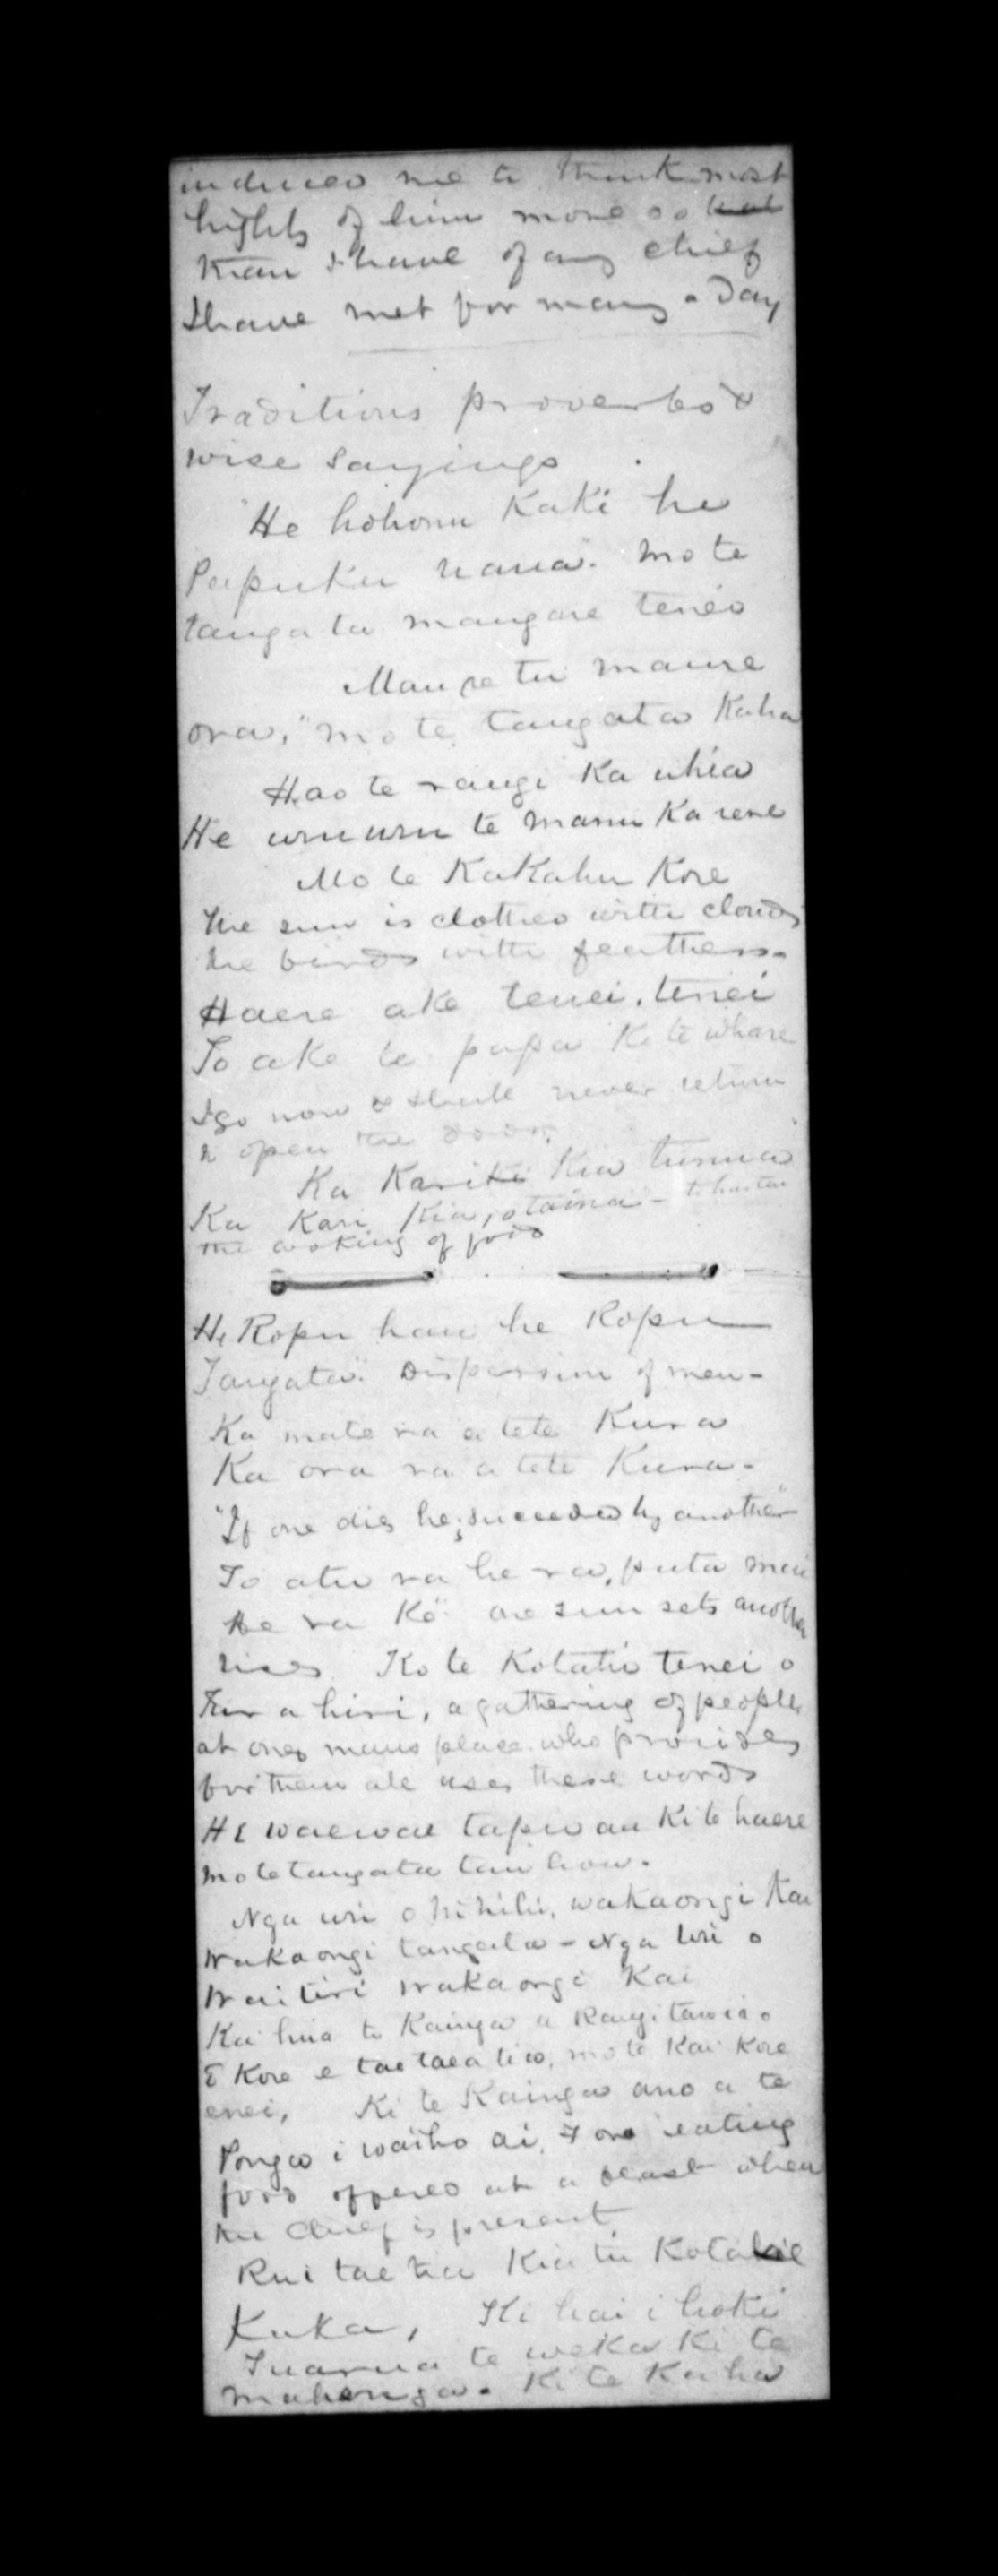 induced me to think most
highly of him more so
than I have of any chief
I have met for many a day
Traditions proverbs &
wise sayings
"He hohonu Kaki he
Papuku uaua". mo te
tangata mangare tenēo
Maure tu maure
ora," mo te tangata Kaha
H. ao te rangi Ka uhia
He uruuru te manu Ka rere
Mo te KaKahu Kore
The sun is clothed with clouds
the birds with feathers.
Haere ake tenei, tenei
To ake te papa Ki te whare
I go now & shall never return
to open the door.
Ka Kari Kia tunua
Ka Kari Kia, otaina" - to hasten
the cooking of food
He Ropu hau he Ropu
Tangata". Dispersion of men -
Ka mate ra a tete Kura
Ka ora ra a tete Kura -
"If one dies he is succeeded by another"
To atu ra he ra, puta mai
He ra Ko" one sun sets another
rises Ko te Kotahi tenei o
Tu a hiri, a gathering of people
at ones mans place who provides
for them all uses these words
HE waewae tapu au Ki te haere
mo te tangata tau hou.
Nga uri o hihihi, wakaongi Kai
Wakaongi tangata - Nga Uri o
Waitiri wakaongi Kai
Kai hua te Kainga a Rangitawia.
E Kore e tae taea tia, mo te Kai Kore
enei, Ki te Kainga ano a te
Ponga i waiho ai, of one eating
food offered at a feast when
the chief is present
Rui tae tia Kia tu Kota
Kuka, Ki hai i hoki
Tuarua te weka Ki te
mahanga. Ki te Kaha